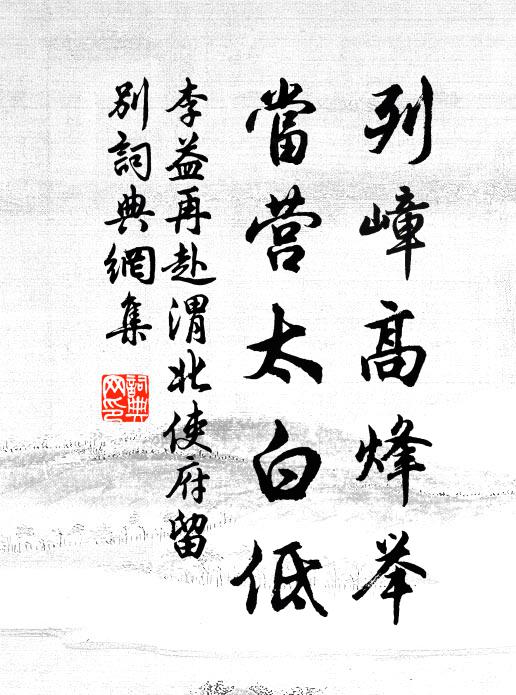 列嶂高烽举
當营太白低
李益再赴渭北使府留
别詞典網集
詞典
网印